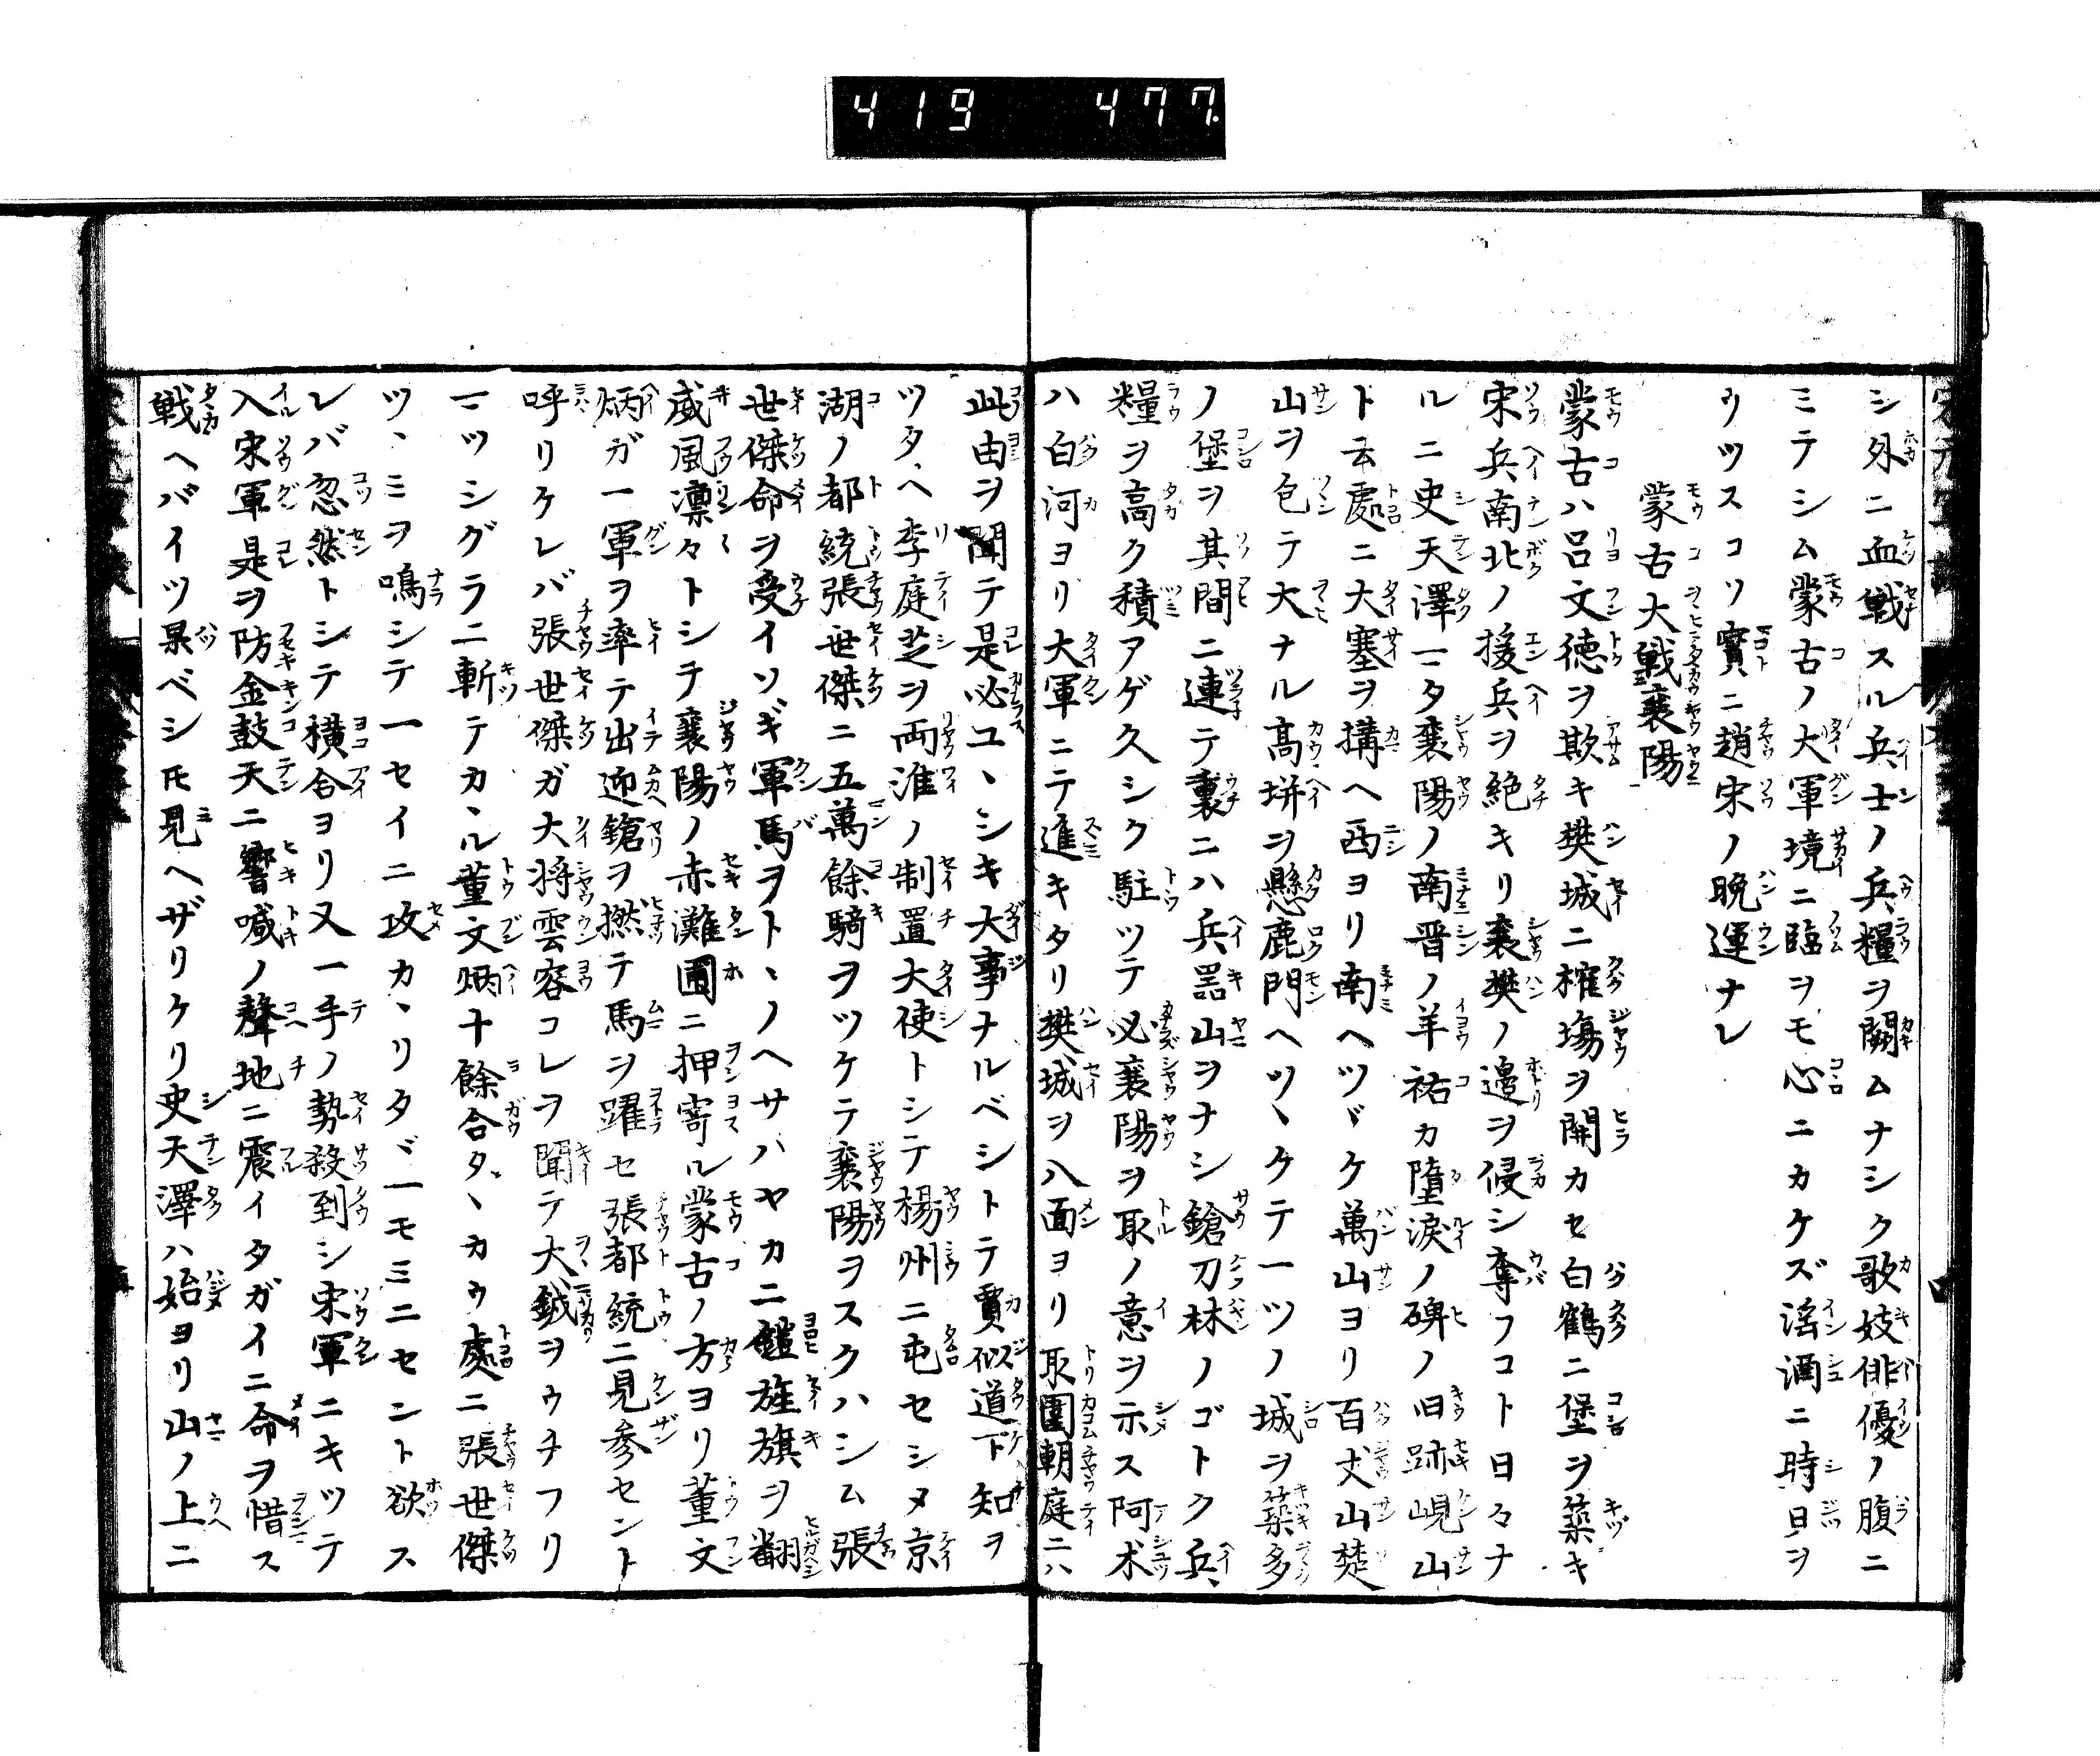 419 477.
シ外ニ血戦スル兵士ノ兵糧ヲ闕ムナシク歌妓俳優ノ腹ニ
ミテシム蒙古ノ大軍境ニ臨ヲモ心ニカケズ滛酒ニ時日ヲ
ウツスコソ實ニ趙宋ノ晩運ナレ
蒙古大戦襄陽
蒙古ハ呂文徳ヲ欺キ樊城ニ榷塲ヲ開カセ白鶴ニ堡ヲ築キ
宋兵南北ノ援兵ヲ絶キリ襄樊ノ邊ヲ侵シ奪フコト日々ナ
ルニ史天澤一タ襄陽ノ南晋ノ羊祜カ墮淚ノ碑ノ旧跡峴山
ト云處ニ大塞ヲ搆ヘ西ヨリ南ヘツヾケ萬山ヨリ百丈山楚
山ヲ包テ大ナル髙塀ヲ懸鹿門ヘツヽケテ一ツノ城ヲ築多
ノ堡ヲ其間ニ連テ裏ニハ兵噐山ヲナシ鎗刀林ノゴトク兵
糧ヲ高ク積アゲ久シク駐ツテ必襄陽ヲ取ノ意ヲ示ス阿术
ハ白河ヨリ大軍ニテ進キタリ樊城ヲ八面ヨリ取圍朝庭ニハ
此由ヲ聞テ是必ユヽシキ大事ナルベシトテ賈似道下知ヲ
ツタヘ李庭芝ヲ両淮ノ制置大使トシテ楊州ニ屯セシメ京
湖ノ都統張世傑ニ五萬餘騎ヲツケテ襄陽ヲスクハシム張
世傑命ヲ受イソギ軍馬ヲトヽノヘサハヤカニ鎧旌旗ヲ翻
威風凛々トシテ襄陽ノ赤灘圃ニ押寄ル蒙古ノ方ヨリ董文
炳ガ一軍ヲ率テ出迎鎗ヲ撚テ馬ヲ躍セ張都統ニ見参セント
呼リケレバ張世傑ガ大将雲容コレヲ聞テ大鉞ヲウチフリ
一ツシグラニ斬テカヽル董文炳十餘合タヽカウ處ニ張世傑
ツヽミヲ鳴シテ一セイニ攻カヽリタヾ一モミニセント欲ス
レバ忽然トシテ横合ヨリ又一手ノ勢殺到シ宋軍ニキツテ
入宋軍是ヲ防金鼓天ニ響喊ノ聲地ニ震イタガイニ命ヲ惜ス
戦ヘバイツ果ベシ𪜈見ヘザリケリ史天澤ハ始ヨリ山ノ上ニ